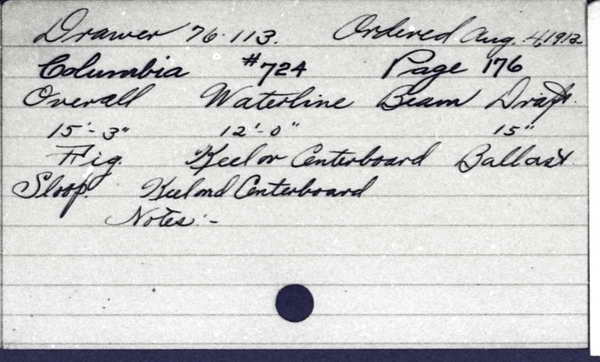 Drawer 76.113. Ordered Aug. 4, 1912
Columbia #724 Page 176
Overall Waterline Beam Draft.
15'-3" 12'-0" 15"
Rig Keel or Centerboard Ballast
Sloop. Keel and Centerboard
Notes:-